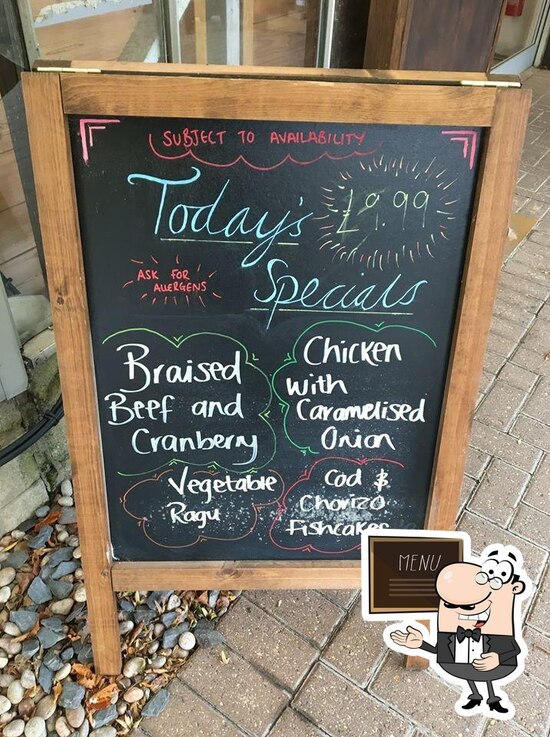 SUBJECT TO AVAILABILITY
Today's
£9.99
Specials
ASK FOR
ALLERGENS
Braised
Beef and
Cranberry
Chicken
with
Caramelised
Onion
Vegetable
Ragu
Cod &
Chorizo
Fishcakes
MENU